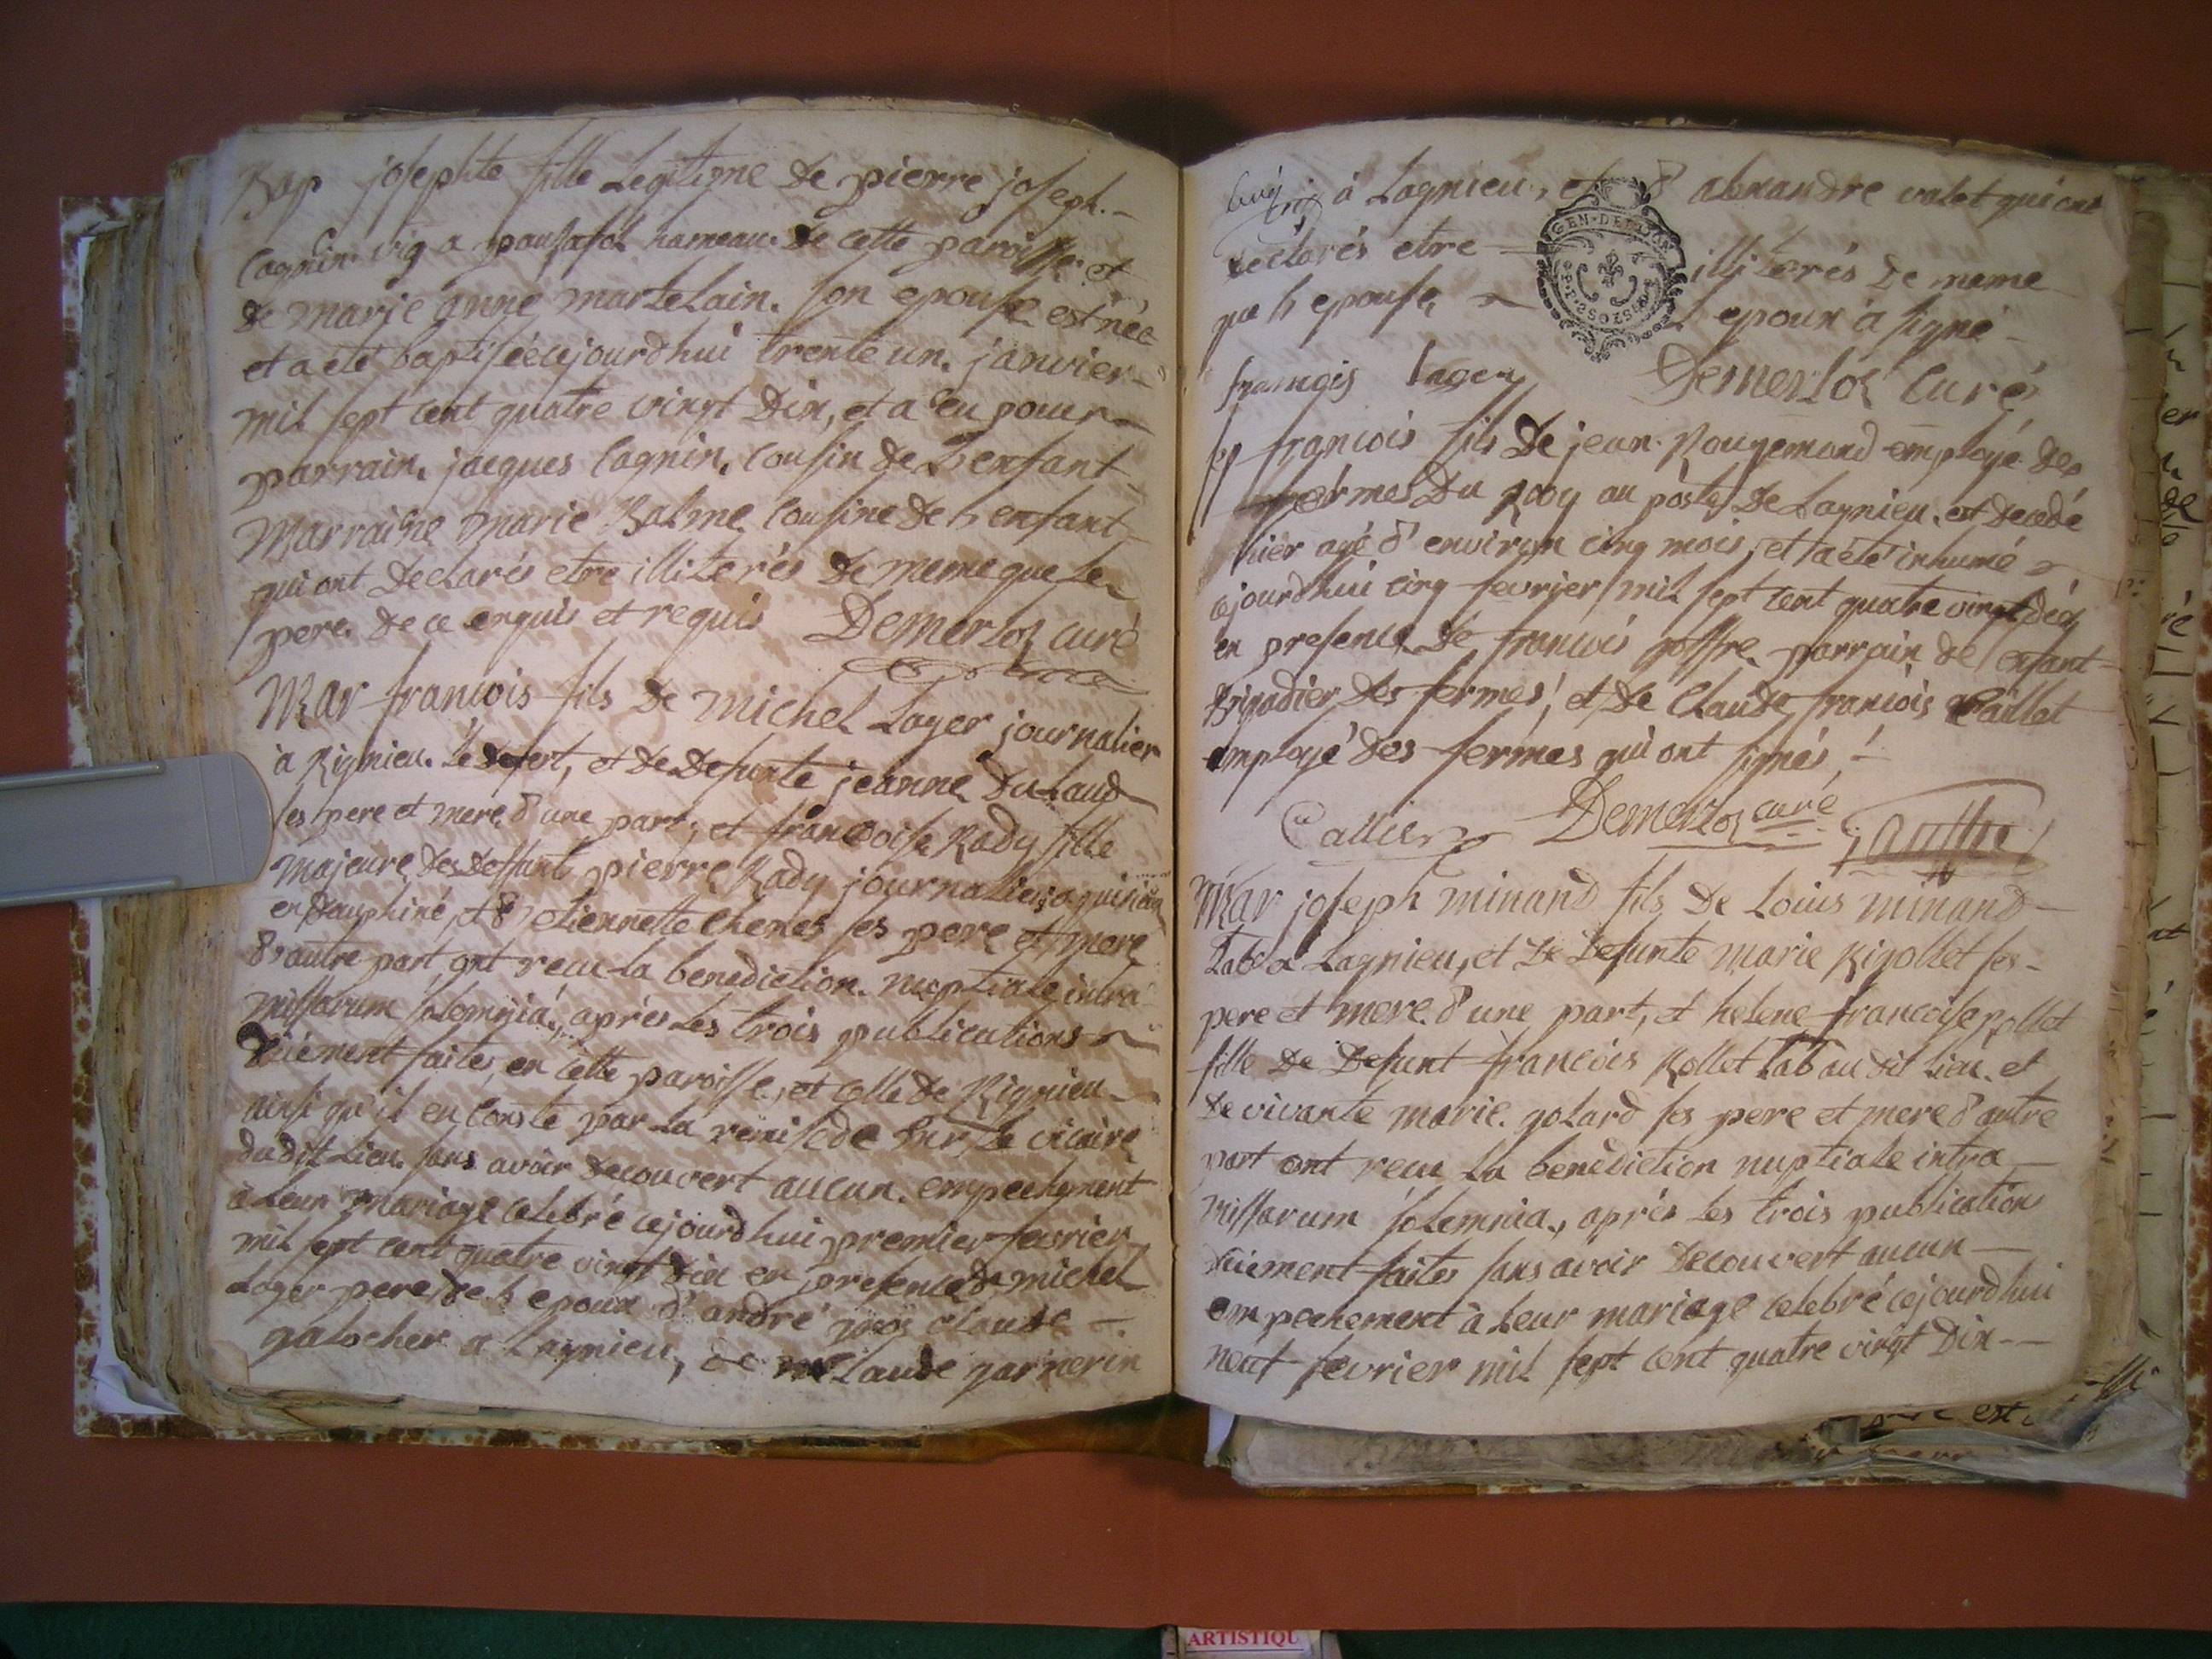 Bap josephte fille Legitime de pierre joseph.
Cagnin vig a hameau de cette paroisse et
de marie anne martelain son epouse est née
et a eté baptisée cejourdhui trente un janvier
mil sept cent quatre vingt dix, et a eu pour
parrain jacques Cagnin, cousin de L'enfant
Marraine marie Balme cousine de L'enfant
qui ont declarés etre illiterés de meme que le
pere de ce enquis et requis Demerloz curé
Mar francois fils de michel Layer journalier
à Rignieu le desert, et de defunte jeanne duland
ses pere et mere d'une part, et francoise Rady fille
majeure des deffunt pierre Rady journalier a
en dauphiné, et d' etiennette ses pere et mere
d'autre part, ont recu la benediction nuptiale intra
missarum solemnia, après les trois publications
duement faites, en cette paroisse, et celle de Rignieu
ainsi qu'il en conste par la remise de Sr le vicaire
dudit Lieu sans avoir decouvert aucun empechement
à leur mariage celebré cejourdhui premier fevrier
mil sept cent quatre vingt dix en presence de michel
Layer pere de L'epoux d'andré claude
galocher a Lagnieu, de claude garnerin
à Lagnieu, et d' alexandre valet qui ont
declarés etre illiterés de meme
que L'epouse L'epoux à signé
GEN. DE LYON
françois layer Demerloz Curé
sep francois fils de jean Rougemond employé des
fermes du Roy au poste de Lagnieu est decedé
hier agé d'environ cinq mois, et a eté inhumé
cejourdhui cinq fevrier mil sept cent quatre vingt dix
en presence de francois parrain de l'enfant
Brigadier des fermes, et de Claude francois Caillet
employé des fermes qui ont signés,
Demerloz curé
Mar joseph minand fils de Louis minand
Lab a Lagnieu, et de defunte marie Rigollet ses
pere et mere d'une part, et helene francoise Rollet
fille de defunt francois Rollet Lab au dit Lieu et
de vivante marie golard ses pere et mere d'autre
part ont recu la benediction nuptiale intra
missarum solemnia, après les trois publication
duement faites sans avoir decouvert aucun
empechement à leur mariage celebré cejourdhui
neuf fevrier mil sept cent quatre vingt dix
ARTISTIQU